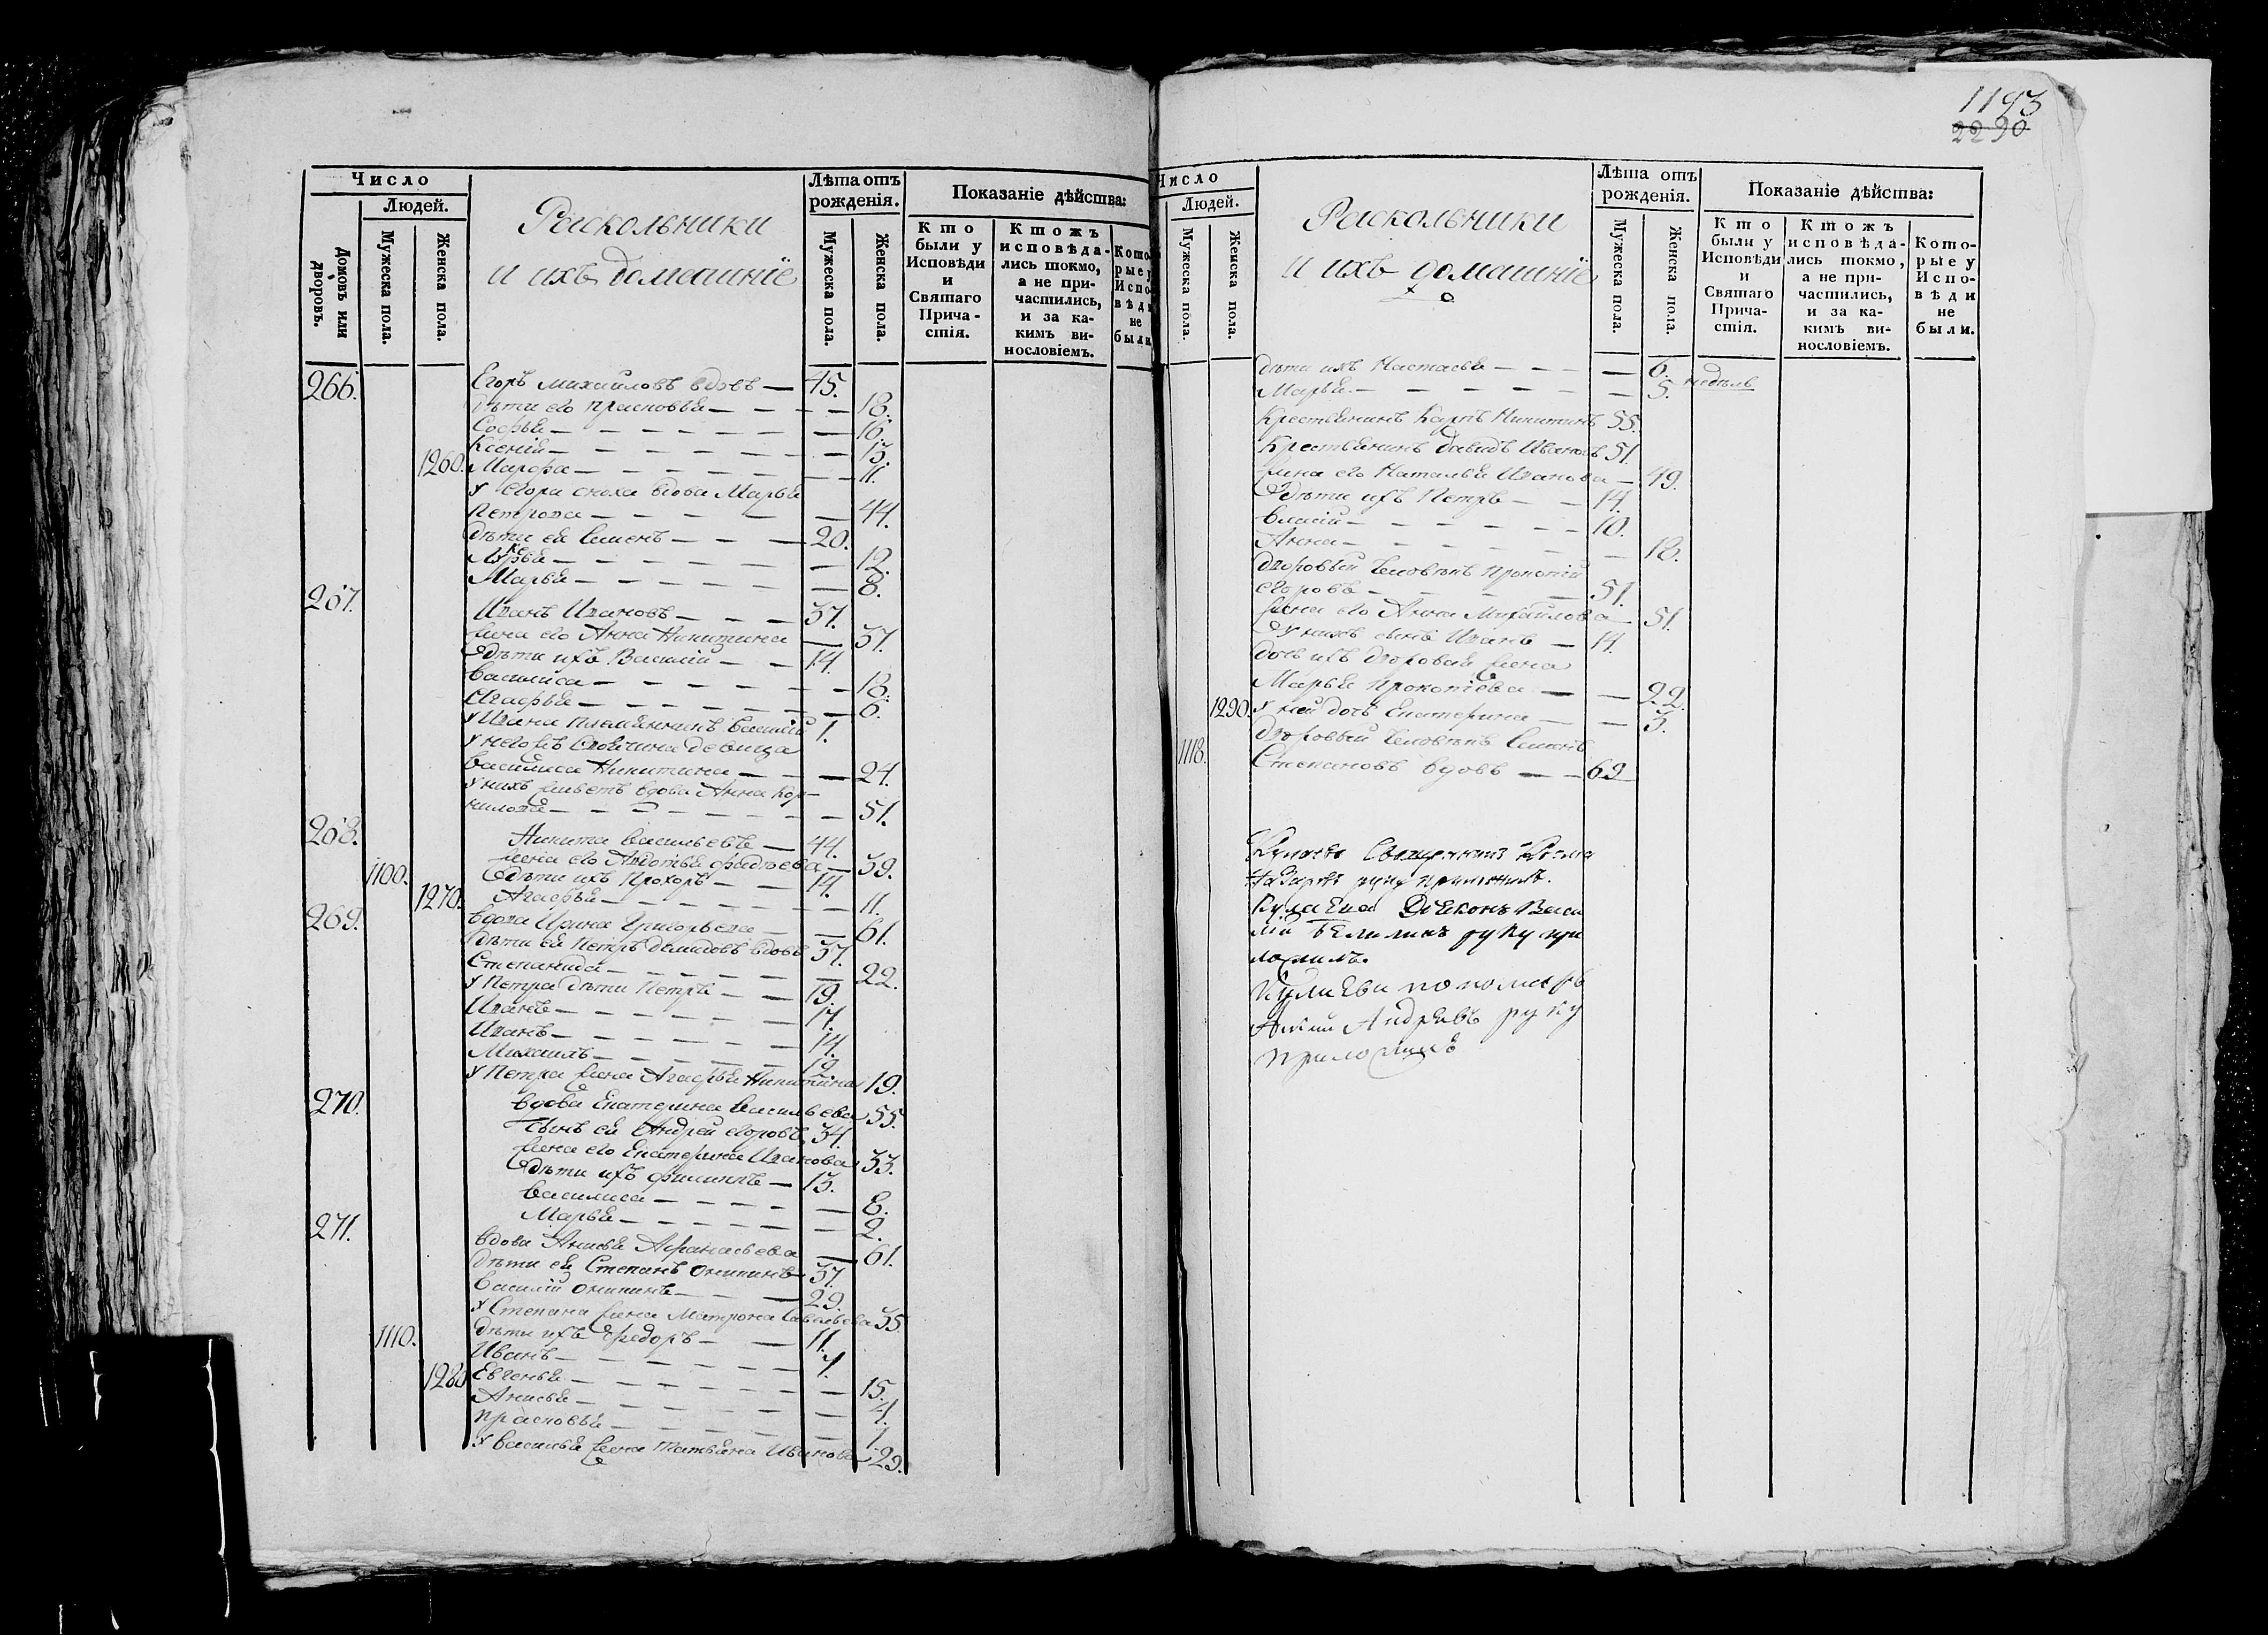 Число
Людей.
Домовъ или дворовъ.
Мужеска пола.
Женска пола.
Раскольники
и ихъ домашнїе
Лѣта отъ рожденїя.
Мужеска пола.
Женска пола.
Показанїе дѣйства:
Кто были у Исповѣди и Святаго Причастїя.
Ктожъ исповѣдались токмо, а не причастились, и за какимъ винословїемъ.
Которые у Исповѣди не были
266. Егоръ Михайловъ вдовъ — 45.
дѣти его Прасковья — 18.
Софья — 16.
Ксенїя — 13.
1260. Марфа — 11.
у Егора сноха вдова Марья
Петрова — 44.
дѣти ея Семенъ — 20.
Марья — 12.
Марья — 8.
267. Иванъ Ивановъ — 37.
жена его Анна Никитина — 37.
дѣти ихъ Василїй — 14.
Василиса — 18.
Агафья — 6.
у Ивана племянникъ Василїй 1.
у него жъ своячина девица
Василиса Никитина — 24.
у нихъ живетъ вдова Анна Кор-
нилова — 51.
268. Никита Васильевъ — 44.
жена его Авдотья Фадѣева — 39.
1100. дѣти ихъ Прохоръ — 14.
1270. Агафья — 11.
269. вдова Ирина Григорьева — 61.
дѣти ея Петръ Демидовъ вдовъ 37.
Степанида — 22.
у Петра дѣти Петръ — 19.
Иванъ — 17.
Иванъ — 14.
Михаилъ — 12.
у Петра жена Агафья Никитина 19.
270. вдова Екатерина Васильева 55.
сынъ ея Андрей Егоровъ 34.
жена его Екатерина Иванова 33.
дѣти ихъ Филиппъ — 13.
Василиса — 8.
Марья — 2.
271. вдова Анисья Афанасьева — 61.
дѣти ея Степанъ Осипинъ 37.
Василїй Осипинъ — 29.
у Степана жена Матрона Савельева 35
1110. дѣти ихъ Федоръ — 11.
Иванъ — 7.
1280 Евгенья — 15.
Анисья — 4.
Прасковья — 1.
у Василья жена Татьяна Иванова 29.
1193
2290
Число
Людей.
Мужеска пола.
Женска пола.
Раскольники
и ихъ домашнїе
Лѣта отъ рожденїя.
Мужеска пола.
Женска пола.
Показанїе дѣйства:
Кто были у Исповѣди и Святаго Причастїя.
Ктожъ исповѣдались токмо, а не причастились, и за какимъ винословїемъ.
Которые у Исповѣди не были.
дѣти ихъ Настасья — 6.
Марья — 5. недѣль
Крестьянинъ Карпъ Никитинъ 55.
Крестьянинъ Давидъ Ивановъ 51.
жена его Наталья Иванова — 49.
дѣти ихъ Петръ — 14.
Власїй — 10.
Анна — 18.
дворовый человѣкъ Прокопїй
Егоровъ — 51.
жена его Анна Михайлова — 51.
у нихъ сынъ Иванъ — 11.
дочь ихъ дворовая жена
Марья Прокопїева — 22.
1290. у ней дочь Екатерина — 3.
дворовый человѣкъ Семенъ
1118. Степановъ вдовъ — 69
Священникъ Козма
Назаровъ руку приложилъ.
Дїяконъ Васи
лїй руку при
ложилъ.
пономарь
Андреевъ руку
приложилъ